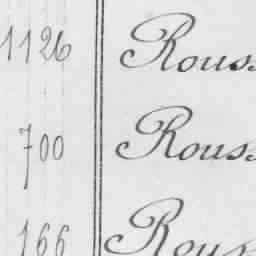 1126 Rouss
700 Rouss
166 Rous